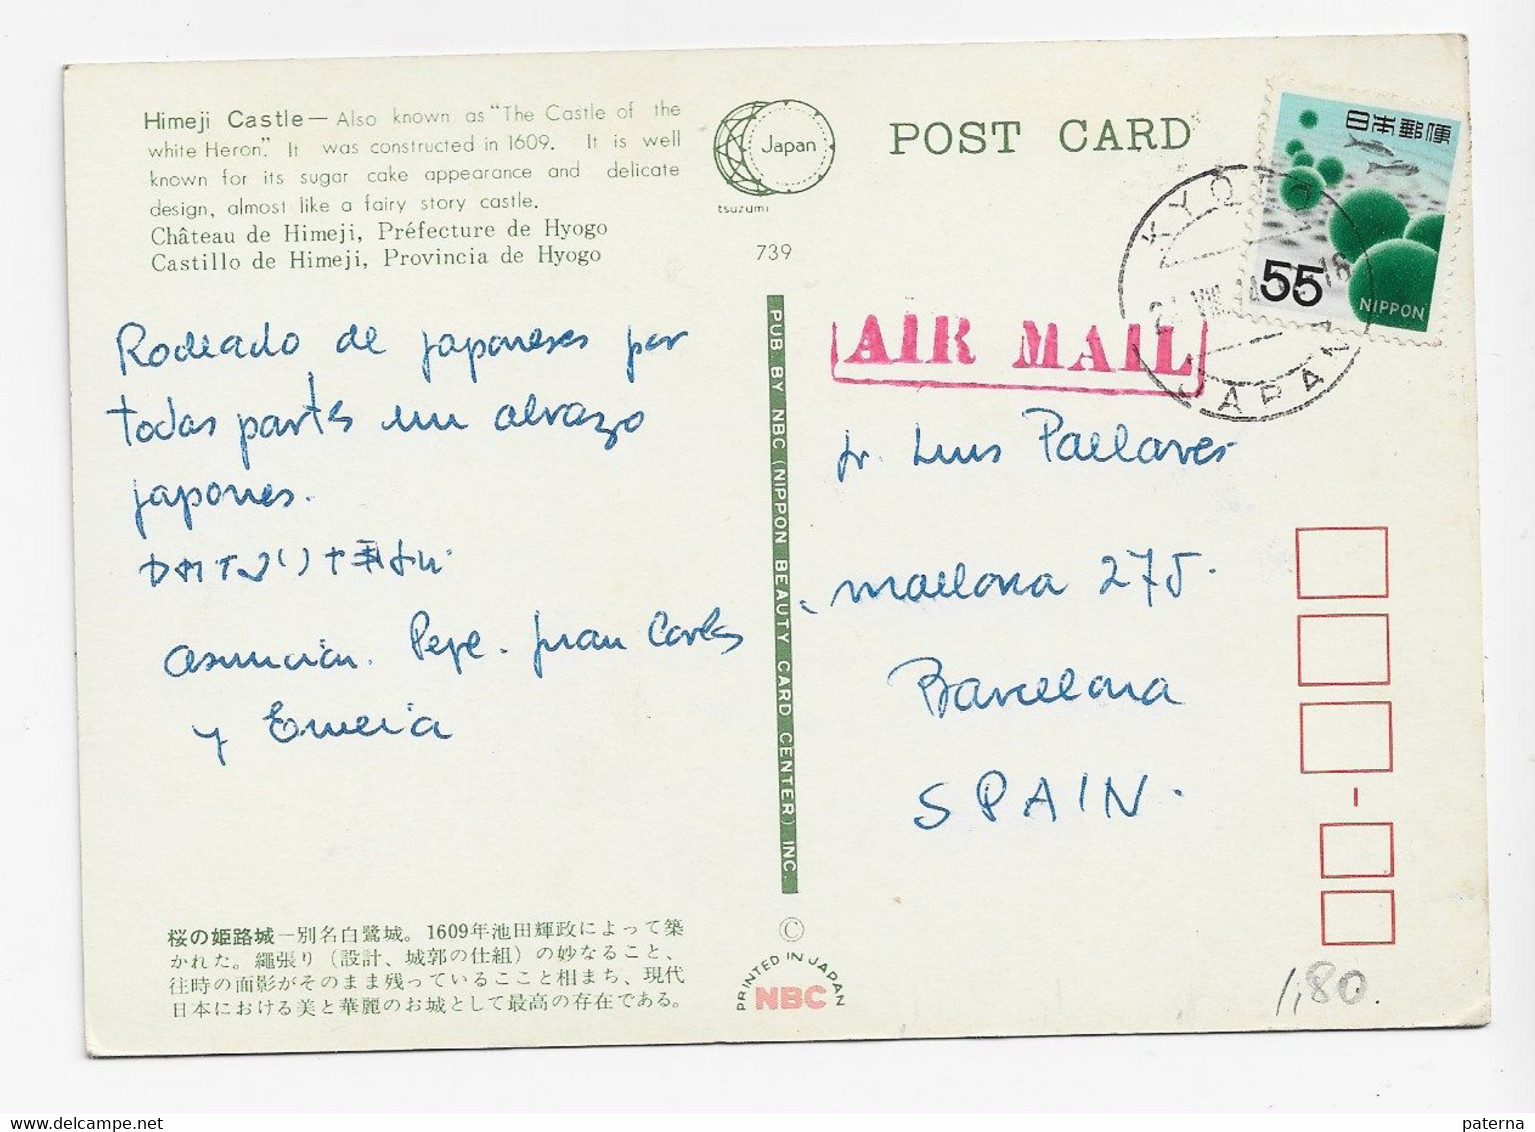 Himeji Castle — Also known as "The Castle of the
white Heron." It was constructed in 1609. It is well
known for its sugar cake appearance and delicate
design, almost like a fairy story castle.
Château de Himeji, Préfecture de Hyogo
Castillo de Himeji, Provincia de Hyogo
Japan
tsuzumi
739
POST CARD
日本郵便
55
NIPPON
KYOTO
JAPAN
AIR MAIL
Rodeado de japoneses por
todas partes un abrazo
japones.
Asuncion. Pepe. Juan Carlos
y Emelia
PUB. BY NBC (NIPPON BEAUTY CARD CENTER) INC.
Sr. Luis Pallares
Mallorca 275.
Barcelona
SPAIN.
桜の姫路城—別名白鷺城。1609年池田輝政によって築
かれた。繩張り（設計、城郭の仕組）の妙なること、
往時の面影がそのまま残っていることと相まち、現代
日本における美と華麗のお城として最高の存在である。
©
PRINTED IN JAPAN
NBC
1,80.
paterna